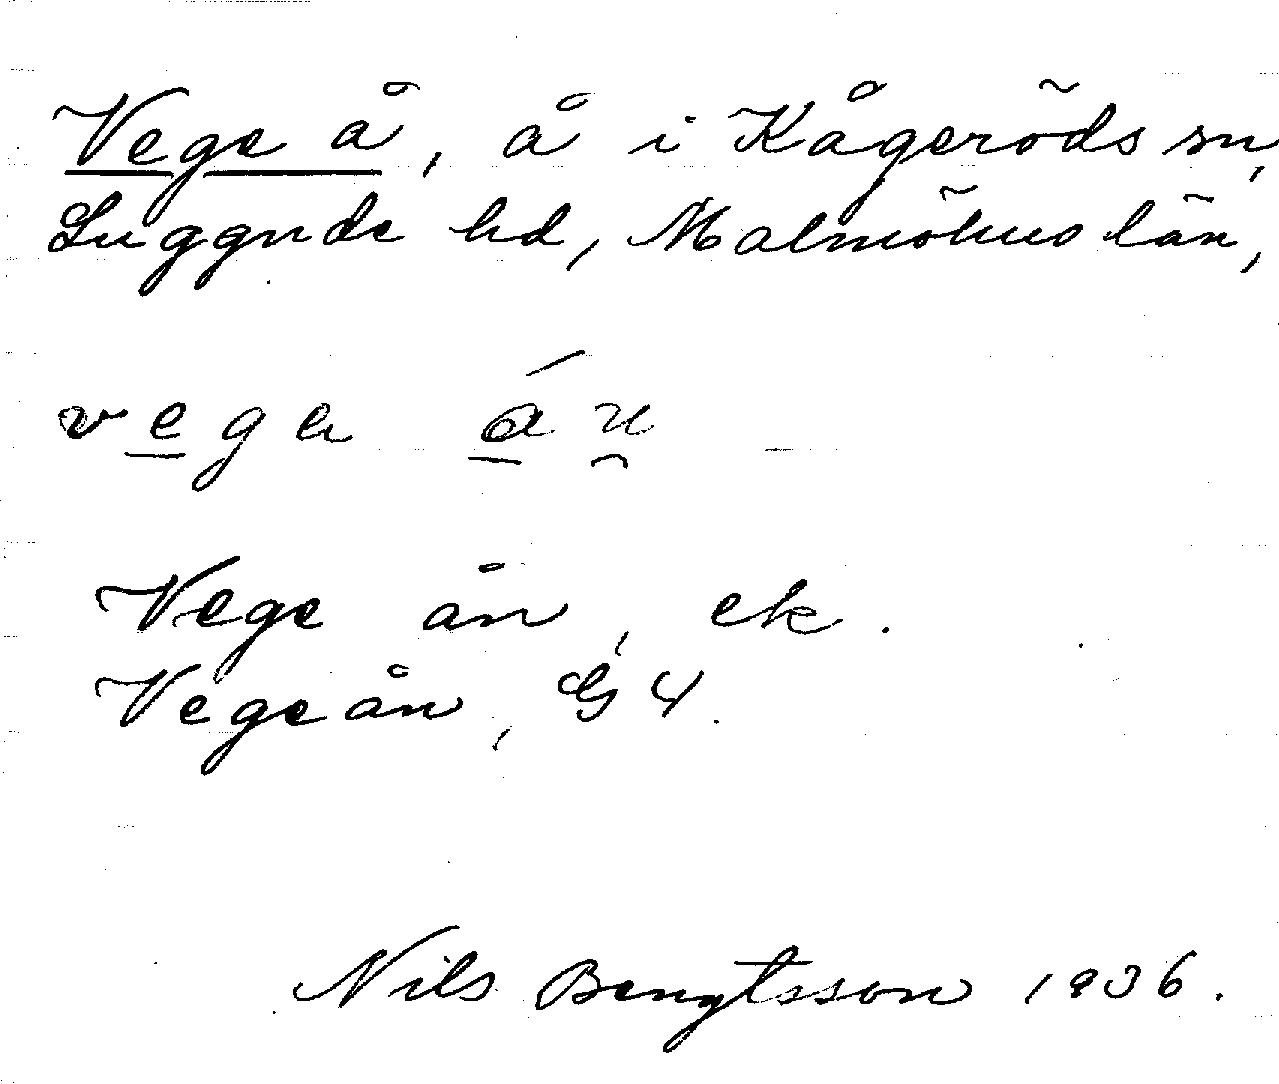 Vege å, å i Kågeröds sn,
Luggude hd, Malmöhus län,
vegə án
Vege ån, ek.
Vegeån, G 4.
Nils Bengtsson 1936.